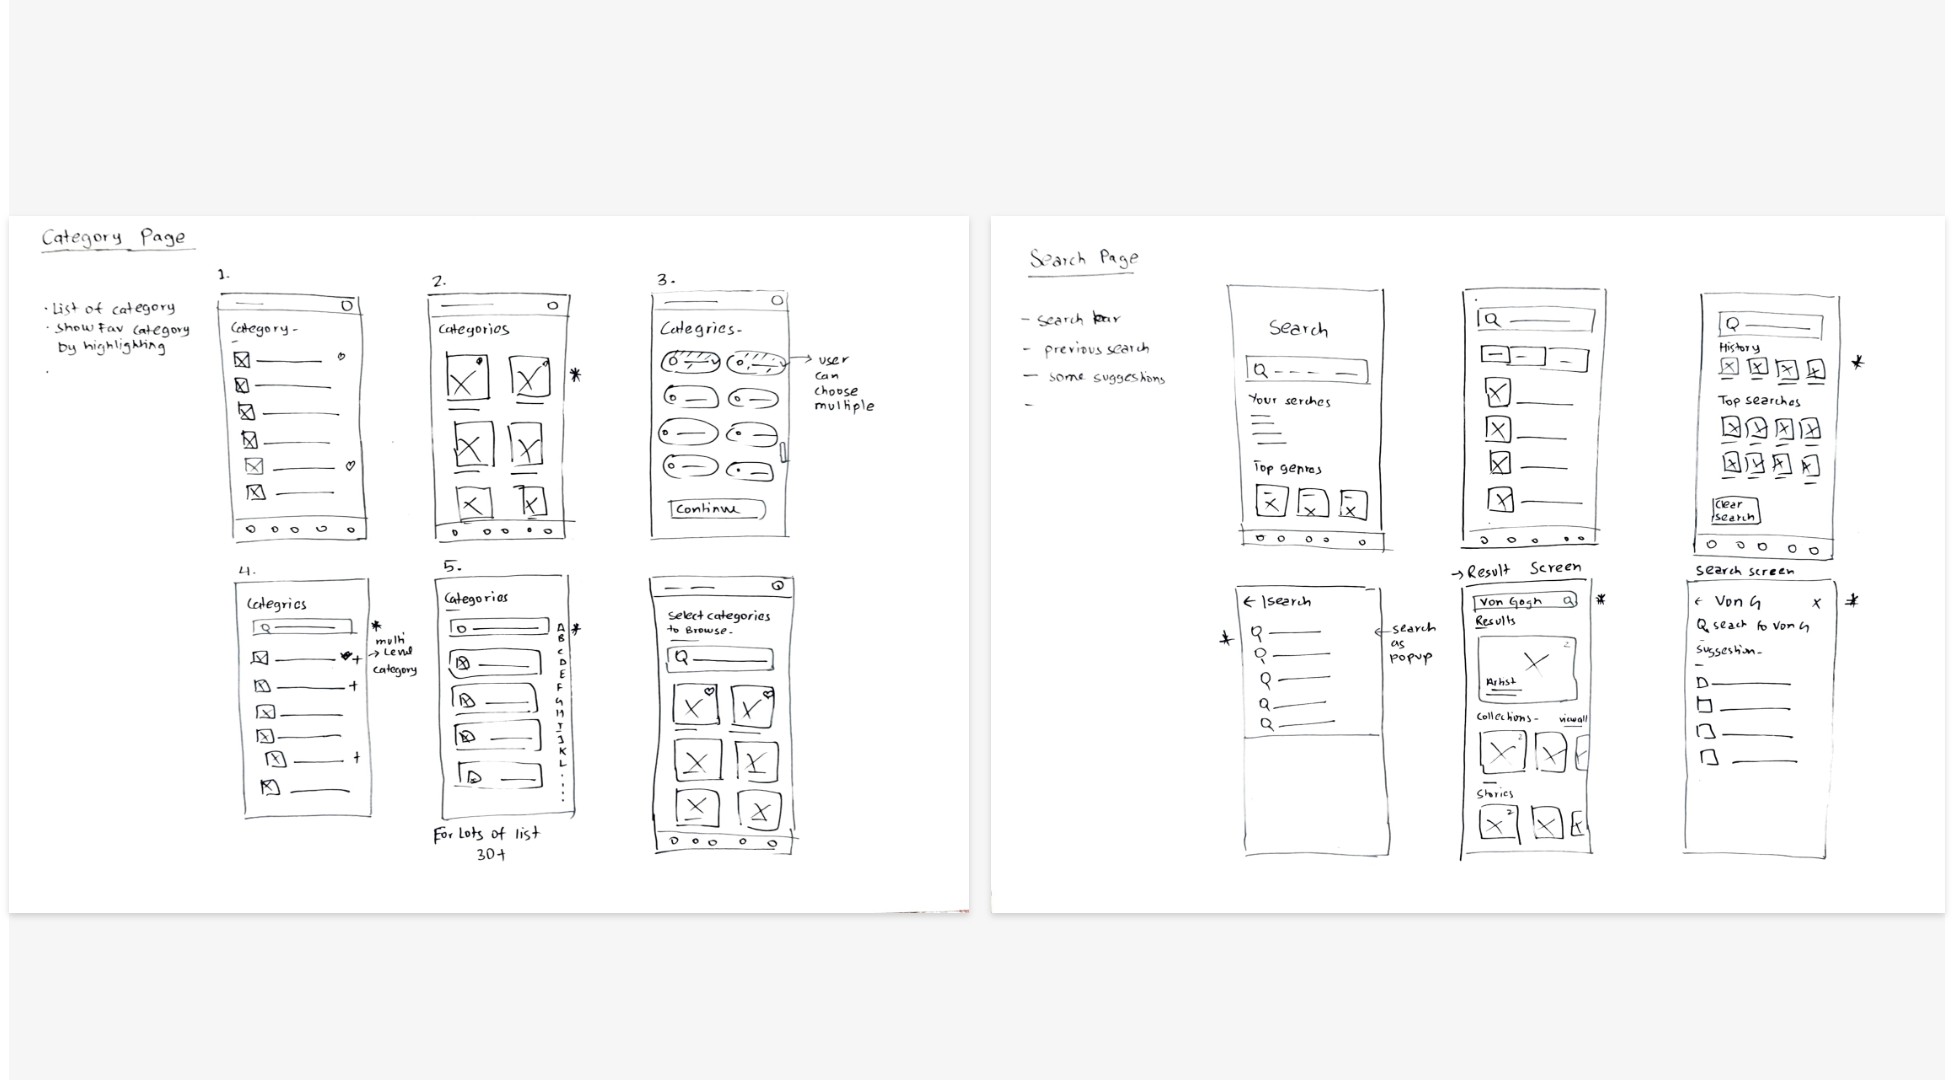 Category Page
· List of category
· show Fav category
by highlighting
1.
Category -
2.
Categories
*
3.
Categries-
→ user
can
choose
multiple
Continue
4.
Categries
*
multi
→ Level
category
5.
Categories
*
A
B
C
D
E
F
G
H
I
J
K
L
For Lots of list
30+
Select categories
to Browse-
Search Page
- search bar
- previous search
- some suggestions
-
Search
Your serches
Top genres
History
*
Top searches
Clear
search
← |search
*
← search
as
popup
→ Result Screen
Von Gogh
*
Results
Artist
Collections - viewall
Stories
search screen
← Von G X
*
Q seach fo Von G
suggestion-